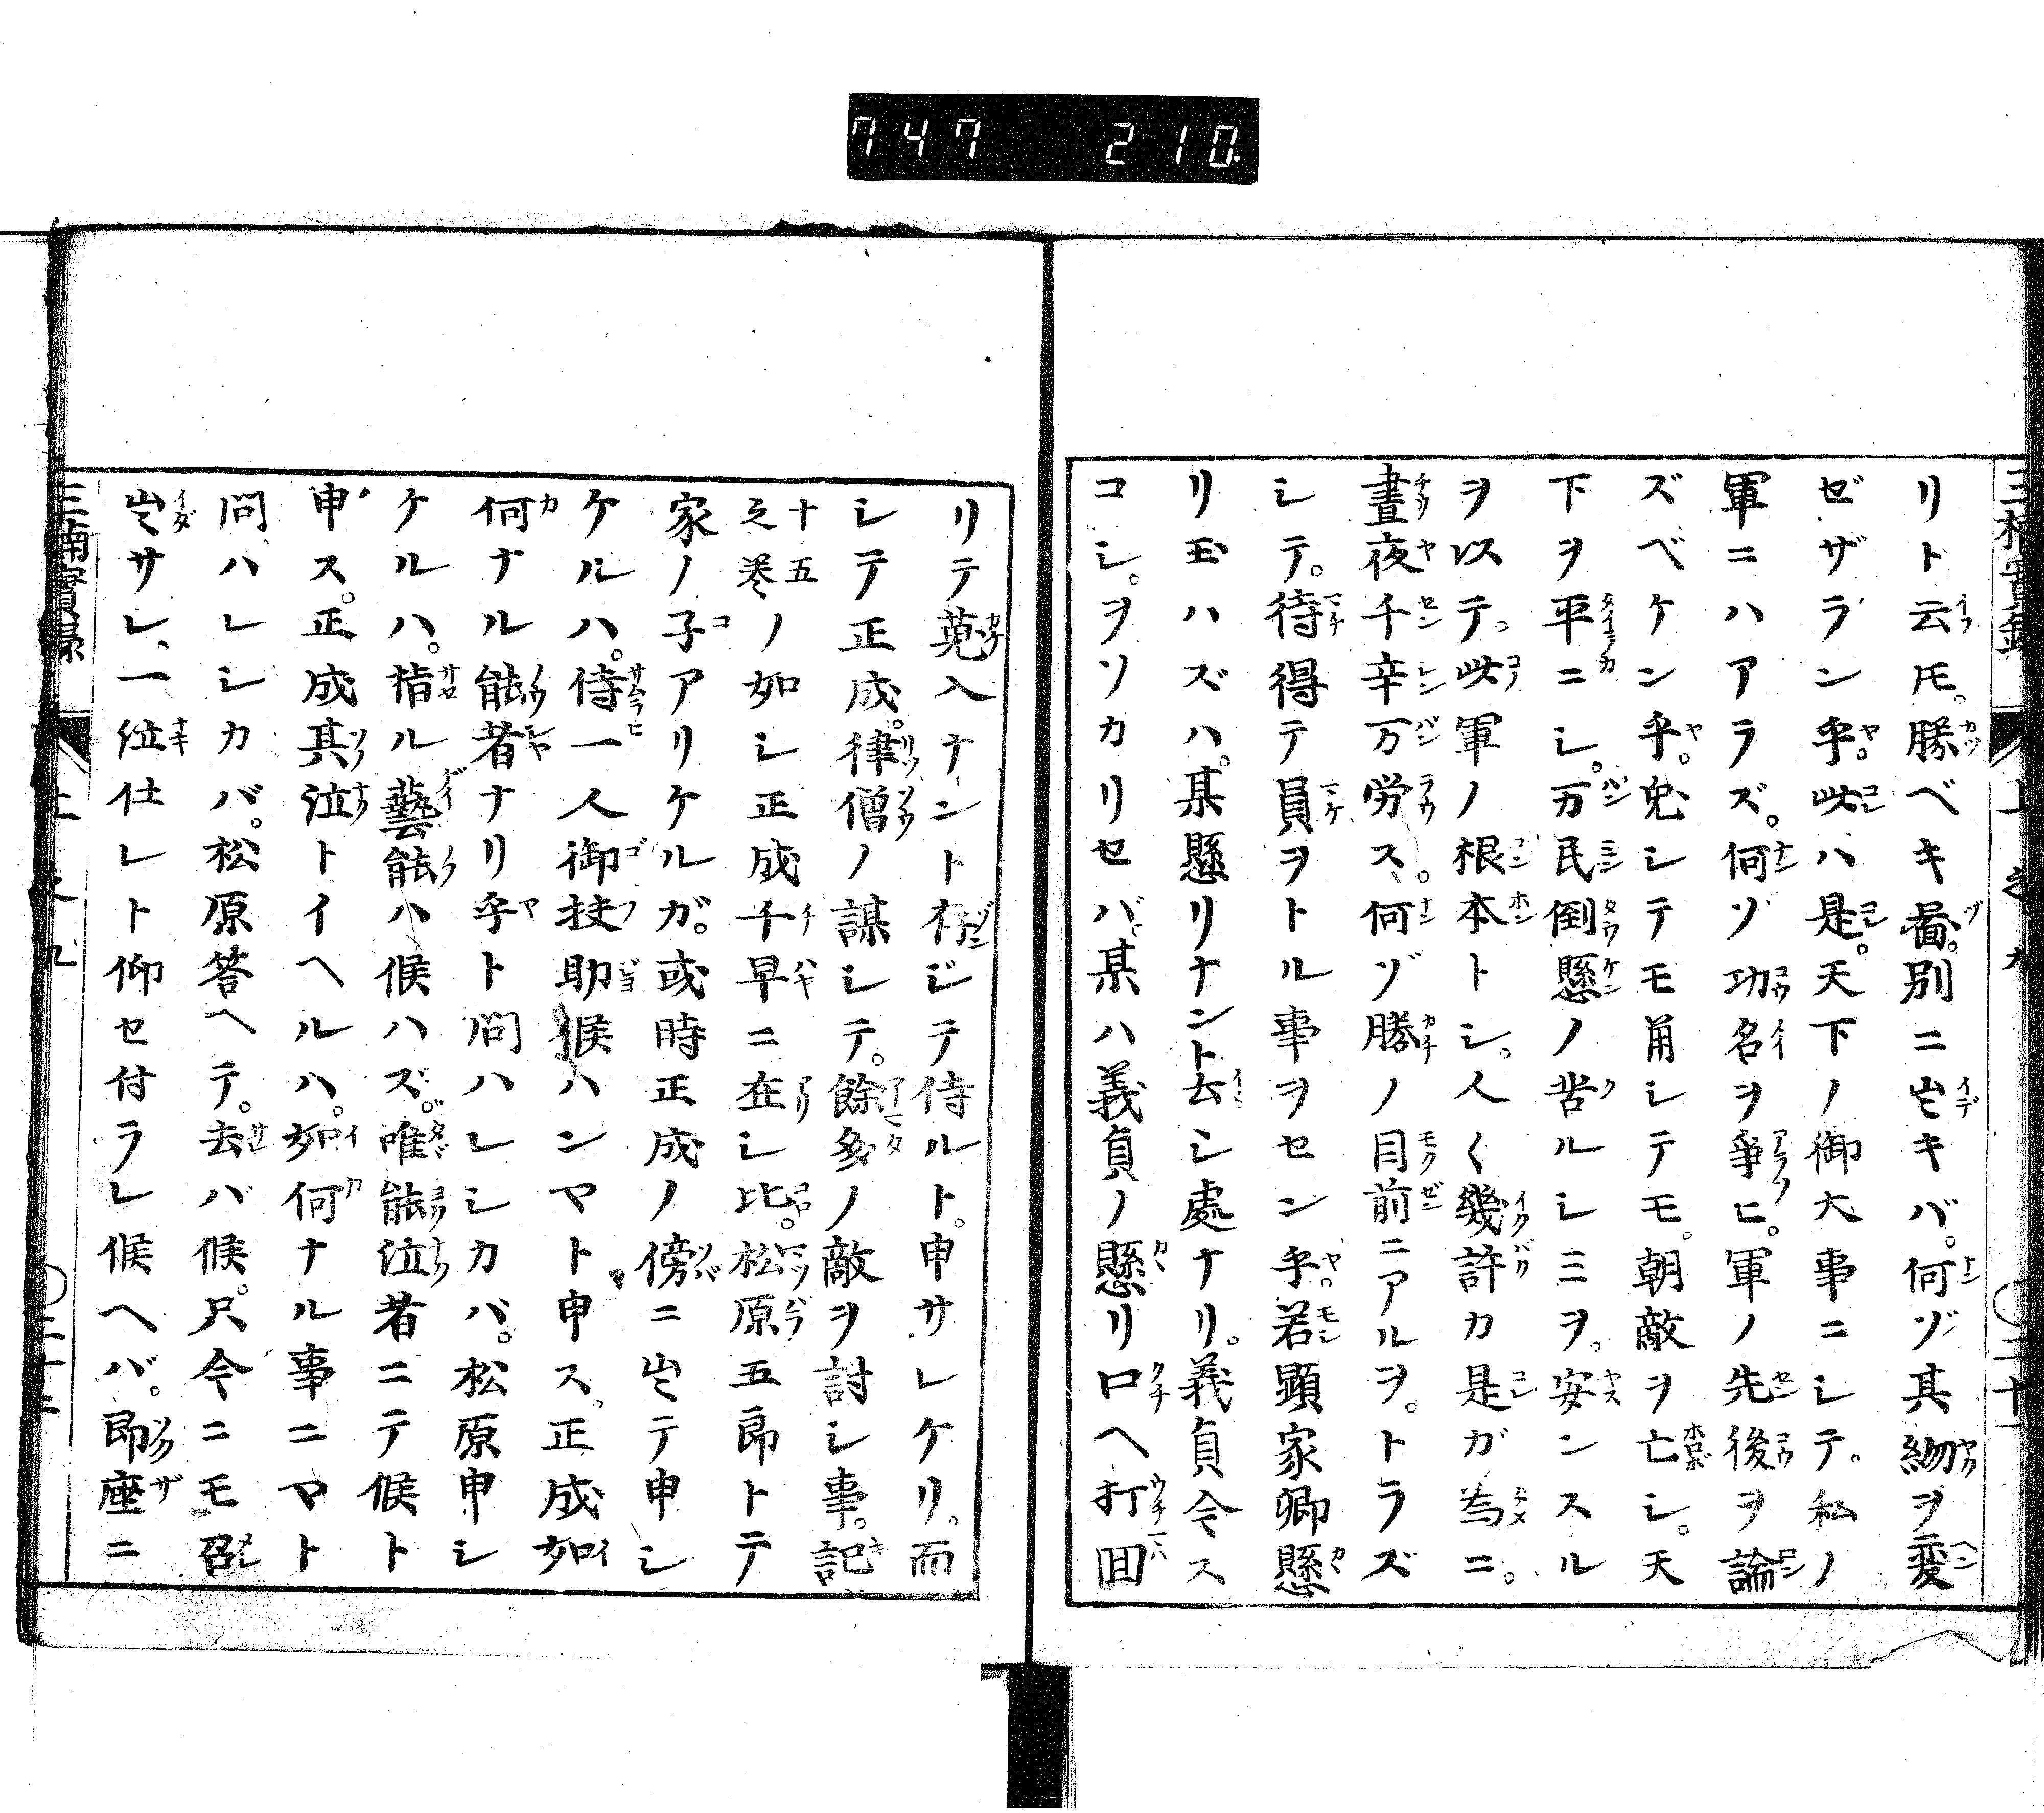 747 210
リト云圧。勝ベキ畾。別ニ出キバ。何ゾ其約ヲ変
ゼザラン乎。此ハ是。天下ノ御大事ニシテ。私ノ
軍ニハアラズ。何ゾ功名ヲ爭ヒ。軍ノ先後ヲ論
ズベケン乎。兎シテモ角シテモ。朝敵ヲ亡シ。天
下ヲ平ニシ。万民倒懸ノ苦ルシミヲ。安ンスル
ヲ以テ。此軍ノ根本トシ。人〱幾許カ是ガ為ニ。
晝夜千辛万労ス。何ゾ勝ノ目前ニアルヲ。トラズ
シテ。待得テ負ヲトル事ヲセン乎。若顕家卿懸
リ玉ハズハ。某懸リナント云シ處ナリ。義貞令ス
コシ。ヲソカリセバ。某ハ義貞ノ懸リ口ヘ打囬
リテ蒐入ナント存ジテ侍ルト。申サレケリ。而
シテ正成。律僧ノ謀シテ。餘多ノ敵ヲ討シ事。記
十五之巻ノ如シ正成千早ニ在シ比。松原五郎トテ
家ノ子アリケルガ。或時正成ノ傍ニ出テ申シ
ケルハ。侍一人御扶助候ハンマト申ス。正成如
何ナル能者ナリ乎ト問ハレシカバ。松原申シ
ケルハ。指ル藝能ハ候ハズ。唯能泣者ニテ候ト
申ス。正成其泣トイヘルハ。如何ナル事ニマト
問ハレシカバ。松原答ヘテ。去バ候。只今ニモ召
出サレ、一泣仕レト仰セ付ラレ候ヘバ。即座ニ
三楠實録